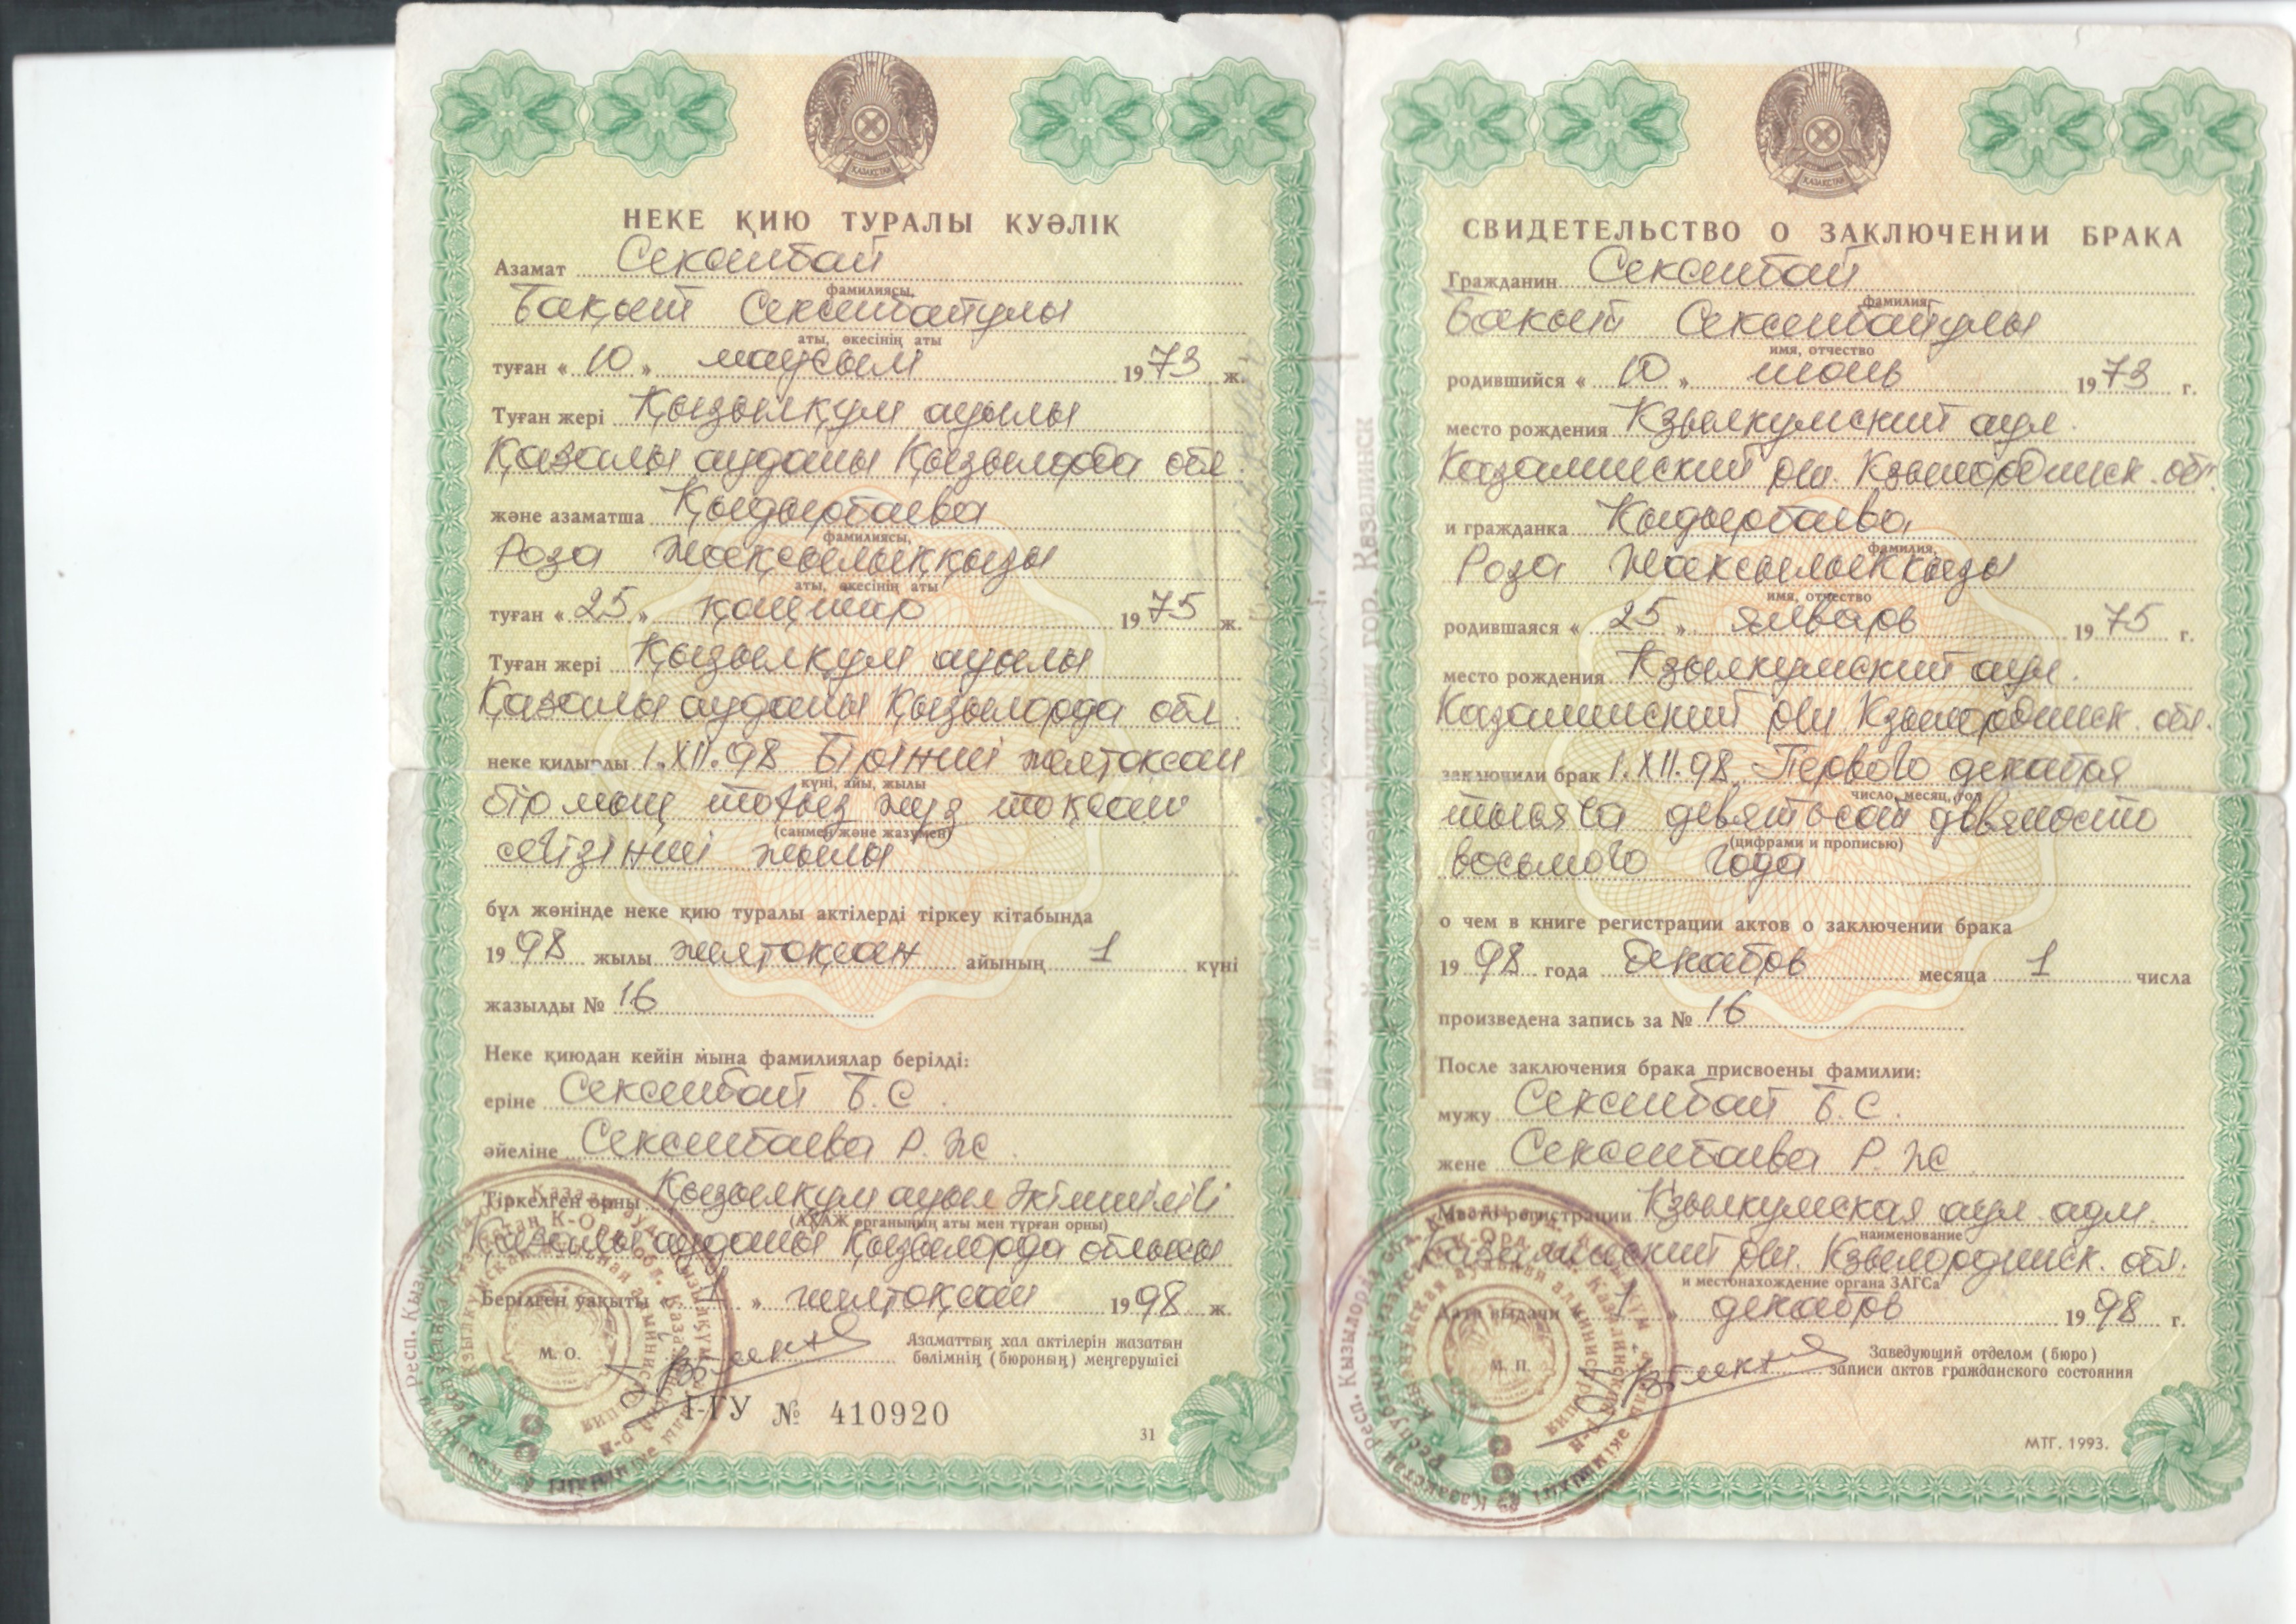 НЕКЕ ҚИЮ ТУРАЛЫ КУӘЛІК
Азамат Сексенбай
фамилиясы,
Бақыт Сексенбайұлы
аты, әкесінің аты
туған « 10 » маусым 1973 ж.
Туған жері Қызылқум ауылы
Қазалы ауданы Қызылорда обл.
және азаматша Қыдырбаева
фамилиясы,
Роза Жақсылыққызы
аты, әкесінің аты
туған « 25 » қаңтар 1975 ж.
Туған жері Қызылқум ауылы
Қазалы ауданы Қызылорда обл.
неке қидырды 1.XII.98 Бірінші желтоқсан
күні, айы, жылы
бір мың тоғыз жүз тоқсан
(санмен және жазумен)
сегізінші жылы
бұл жөнінде неке қию туралы актілерді тіркеу кітабында
1998 жылы желтоқсан айының 1 күні
жазылды № 16
Неке қиюдан кейін мына фамилиялар берілді:
еріне Сексенбай Б.С.
әйеліне Сексенбаева Р.Ж.
Тіркелген орны Қызылқум ауыл әкімшілігі
(АХАЖ органының аты мен тұрған орны)
Қазалы ауданы Қызылорда облысы
Берілген уақыты 1 » желтоқсан 1998 ж.
Азаматтық хал актілерін жазатын
бөлімнің (бюроның) меңгерушісі
М. О.
І-ГУ № 410920
31
СВИДЕТЕЛЬСТВО О ЗАКЛЮЧЕНИИ БРАКА
Гражданин Сексенбай
фамилия
Бакыт Сексенбайулы
имя, отчество
родившийся « 10 » июнь 1973 г.
место рождения Кзылкумский аул.
Казалинский р-н. Кзылординск. обл.
и гражданка Кыдырбаева
фамилия,
Роза Жаксылыккызы
имя, отчество
родившаяся « 25 » январь 1975 г.
место рождения Кзылкумский аул.
Казалинский р-н Кзылординск. обл.
заключили брак 1.XII.98 Первого декабря
число, месяц, год
тысяча девятьсот девяносто
(цифрами и прописью)
восьмого года
о чем в книге регистрации актов о заключении брака
1998 года декабрь месяца 1 числа
произведена запись за № 16
После заключения брака присвоены фамилии:
мужу Сексенбай Б.С.
жене Сексенбаева Р.Ж.
Место регистрации Кзылкумская аул. адм.
наименование
Казалинский р-н. Кзылординск. обл.
и местонахождение органа ЗАГСа
Дата выдачи 1 » декабрь 1998 г.
Заведующий отделом (бюро)
записи актов гражданского состояния
М. П.
МТГ. 1993.